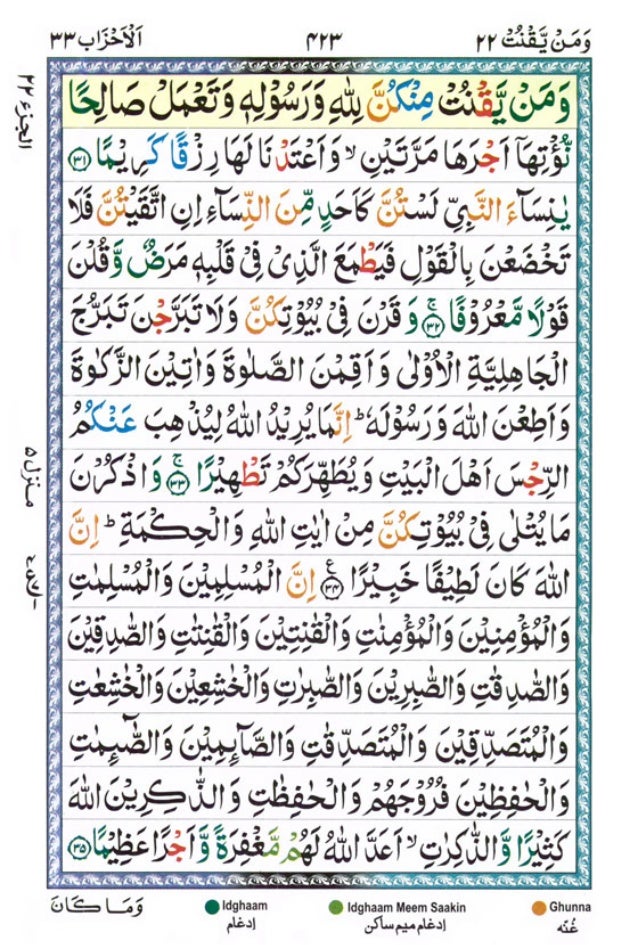 وَمَنْ يَّقْنُتْ ٢٢ ٤٢٣ اَلْاَحْزَاب ٣٣
وَمَنْ يَّقْنُتْ مِنْكُنَّ لِلّٰهِ وَرَسُوْلِهٖ وَتَعْمَلْ صَالِحًا
نُّؤْتِهَاۤ اَجْرَهَا مَرَّتَيْنِ ۙ وَاَعْتَدْنَا لَهَا رِزْقًا كَرِيْمًا ﴿٣١﴾
يٰنِسَآءَ النَّبِيِّ لَسْتُنَّ كَاَحَدٍ مِّنَ النِّسَآءِ اِنِ اتَّقَيْتُنَّ فَلَا
تَخْضَعْنَ بِالْقَوْلِ فَيَطْمَعَ الَّذِىْ فِىْ قَلْبِهٖ مَرَضٌ وَّقُلْنَ
قَوْلًا مَّعْرُوْفًا ۚ﴿٣٢﴾ وَقَرْنَ فِىْ بُيُوْتِكُنَّ وَلَا تَبَرَّجْنَ تَبَرُّجَ
الْجَاهِلِيَّةِ الْاُوْلٰى وَاَقِمْنَ الصَّلٰوةَ وَاٰتِيْنَ الزَّكٰوةَ
وَاَطِعْنَ اللّٰهَ وَرَسُوْلَهٗ ؕ اِنَّمَا يُرِيْدُ اللّٰهُ لِيُذْهِبَ عَنْكُمُ
الرِّجْسَ اَهْلَ الْبَيْتِ وَيُطَهِّرَكُمْ تَطْهِيْرًا ۚ﴿٣٣﴾ وَاذْكُرْنَ
مَا يُتْلٰى فِىْ بُيُوْتِكُنَّ مِنْ اٰيٰتِ اللّٰهِ وَالْحِكْمَةِ ؕ اِنَّ
اللّٰهَ كَانَ لَطِيْفًا خَبِيْرًا ﴿٣٤﴾ اِنَّ الْمُسْلِمِيْنَ وَالْمُسْلِمٰتِ
وَالْمُؤْمِنِيْنَ وَالْمُؤْمِنٰتِ وَالْقٰنِتِيْنَ وَالْقٰنِتٰتِ وَالصّٰدِقِيْنَ
وَالصّٰدِقٰتِ وَالصّٰبِرِيْنَ وَالصّٰبِرٰتِ وَالْخٰشِعِيْنَ وَالْخٰشِعٰتِ
وَالْمُتَصَدِّقِيْنَ وَالْمُتَصَدِّقٰتِ وَالصَّآئِمِيْنَ وَالصّٰٓئِمٰتِ
وَالْحٰفِظِيْنَ فُرُوْجَهُمْ وَالْحٰفِظٰتِ وَالذّٰكِرِيْنَ اللّٰهَ
كَثِيْرًا وَّالذّٰكِرٰتِ ۙ اَعَدَّ اللّٰهُ لَهُمْ مَّغْفِرَةً وَّاَجْرًا عَظِيْمًا ﴿٣٥﴾
الجزء ٢٢
منزل ٥
وَمَا كَانَ
Idghaam
إدغام
Idghaam Meem Saakin
إدغام میم ساکن
Ghunna
غُنّه